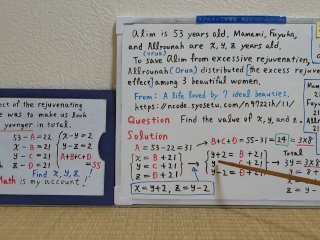 Alim is 53 years old, Mamami, Fuyuho,
and Allrounah are x, y, z years old.
(orua)
To save Alim from excessive rejuvenation,
Allrounah(Orua) distributed [the excess rejuven
effect] among 3 beautiful women.
From: A life loved by 7 ideal beauties.
https://ncode.syosetu.com/
Question Find the value of x, y, and z.
Solution
A = 53-22 = 31 → B+C+D = 55-31 = 24 = 3×8
x = B+21
y = C+21
z = D+21
y+2 = B+21
y = C+21
Total
3y = 3×
x = y+2, z = y-2
ect of the rejuvenating
e was to make us look
younger in total.
53-A = 22
x - B = 21
y - C = 21
z - D = 21
x-y = 2
y-z = 2
A+B+C+D
= 55
Find x, y, z.
Math is my account,